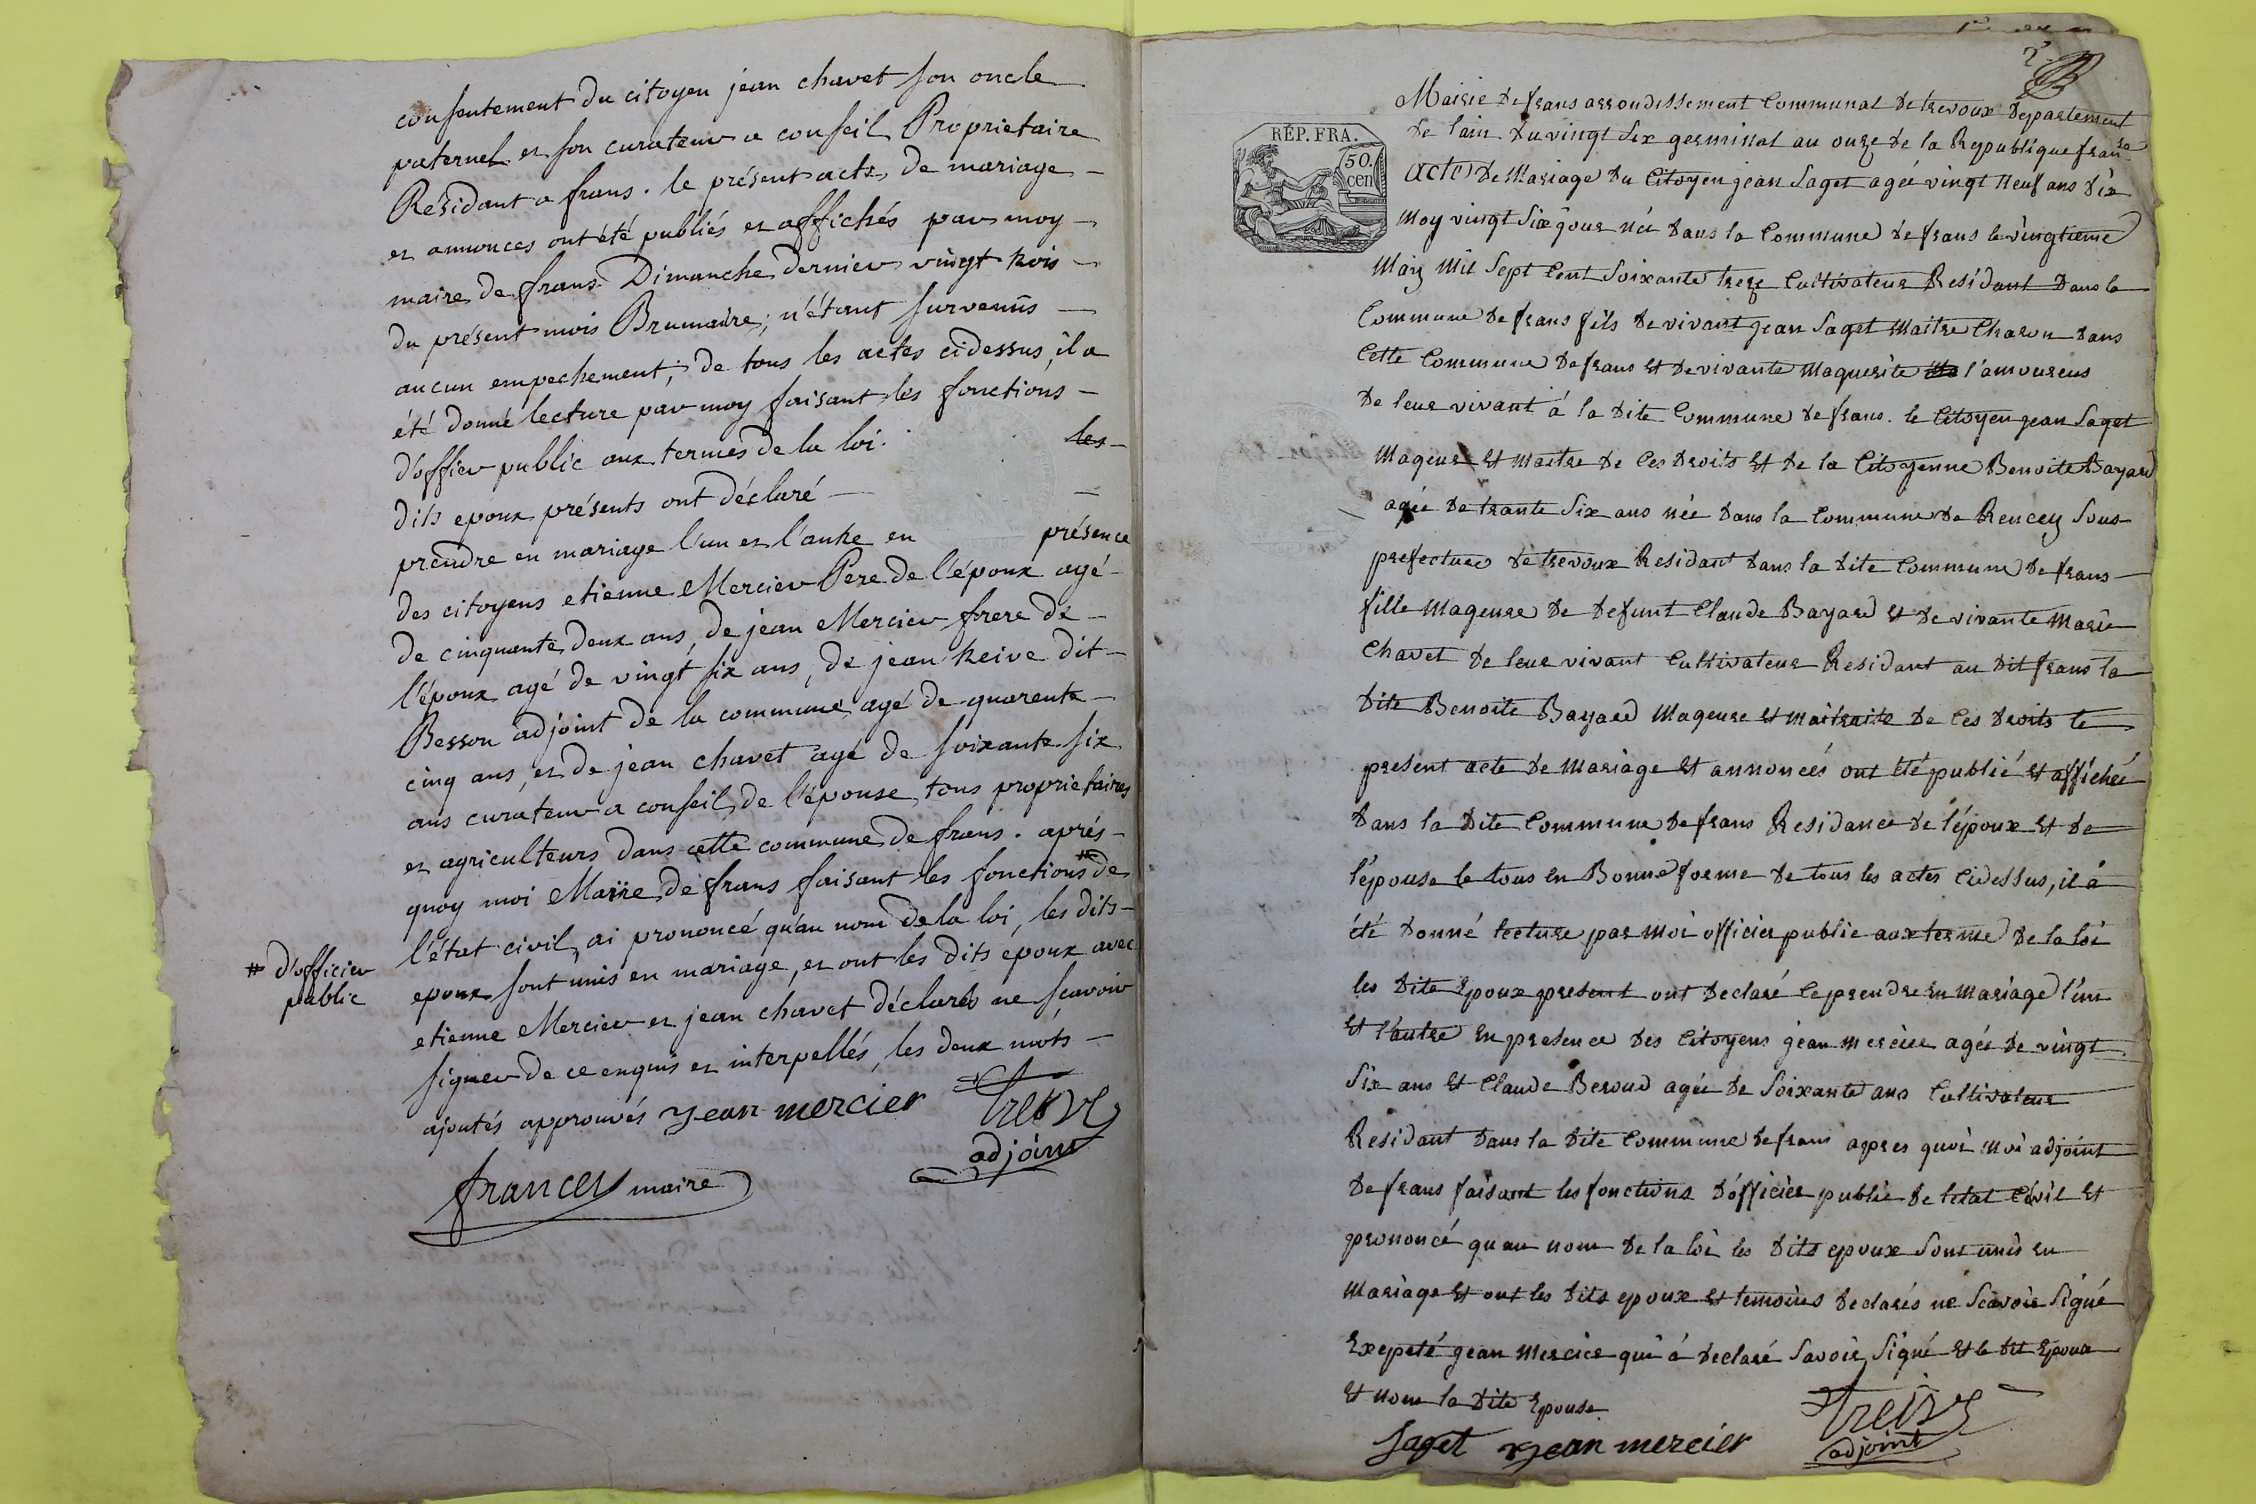 consentement du citoyen jean chavet son oncle
paternel et son curateur a conseil Proprietaire
Residant a frans. le présent acte de mariage –
et annonces ont été publiés et affichés par moy –
maire de frans Dimanche dernier vingt trois –
du présent mois Brumaire; n'étant survenûs –
aucun empechement; de tous les actes cidessus, il a
été donné lecture par moy faisant les fonctions –
d'officier public aux termes de la loi. les –
dits epoux présents ont déclaré –
prendre en mariage l'un et l'autre en présence
des citoyens etienne Mercier Pere de l'époux agé
de cinquante deux ans, de jean Mercier frere de –
l'époux agé de vingt six ans, de jean treive dit –
Besson adjoint de la commune agé de quarente –
cinq ans, et de jean chavet agé de soixante six
ans curateur a conseil de l'épouse, tous proprietaires
et agriculteurs dans cette commune de frans. aprés –
quoy moi Maire de frans faisant les fonctions # de
l'état civil, ai prononcé qu'au nom de la loi, les dits –
# d'officier
public
epoux sont unis en mariage, et ont les dits epoux avec
etienne Mercier et jean chavet déclarés ne sçavoir
signer de ce enquis et interpellés, les deux mots –
ajoutés approuvés jean mercier treive
adjoint
francey maire
2e
Mairie de frans arrondissement Communal de trevoux Departement
RÉP. FRA.
50.
cen
de lain du vingt six germinal an onze de la Republique franse
acte de Mariage du Citoyen jean Saget agée vingt Neuf ans dix
Moy vingt Six jour née dans la Commune de frans le vingtieme
Maiz Mil Sept Cent Soixante treze Cultivateur Residant Dans la
Commune de frans fils de vivant jean Saget Maitre Charon dans
Cette Commune de frans et de vivante Maguerite l'amoureus
De leur vivant á la Dite Commune de frans. le Citoyen jean Saget
Mageur et Maitre de Ces Droits et de la Citoyenne Benoite Bayard
agée de trante Six ans née dans la Commune de Rencey Sous
prefecture de trevoux Residant dans la Dite Commune de frans –
fille Mageure de Defunt Claude Bayard et de vivante Marie
Chavet de leur vivant Cultivateur Residant au Dit frans la
Dite Benoite Bayard Mageure et maitraite de Ces Droits le
present acte de Mariage et annoncés ont été publié et affichée
Dans la Dite Commune de frans Residance de l'époux et de
l'épouse le tous en Bonne forme de tous les actes Cidessus, il á
été donné lecture par Moi officier public aux terme de la loi
les Dite Epoux present ont declaré Ce prendre en Mariage l'un
et l'autre En presence des Citoyens jean mercier agée de vingt
Six ans et Claude Beroud agée de Soixante ans Cultivateur
Residant dans la Dite Commune de frans apres quoi Moi adjoint
De frans faisant les fonctions d'officier public de letat Civil et
prononcé quau nom de la loi les Dits epoux Sont unis en
Mariage et ont les Dits epoux et temoins declarés ne Scavoir Signé
Exepeté jean Mercier qui á declaré Savoir Signé et le dit Epoux
et Non la Dite Epouse.
Saget jean mercier treive
adjoint